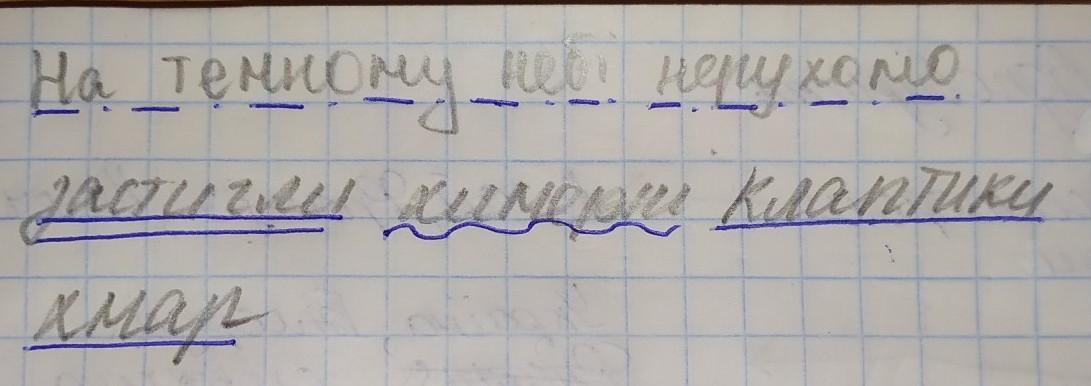 На темному небі нерухомо
застигли химерні клаптики
хмар